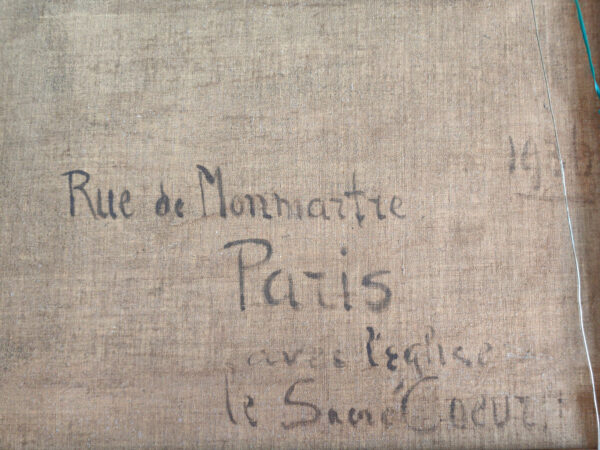 Rue de Monmartre
Paris
avec l'eglise
le Sacré Coeur